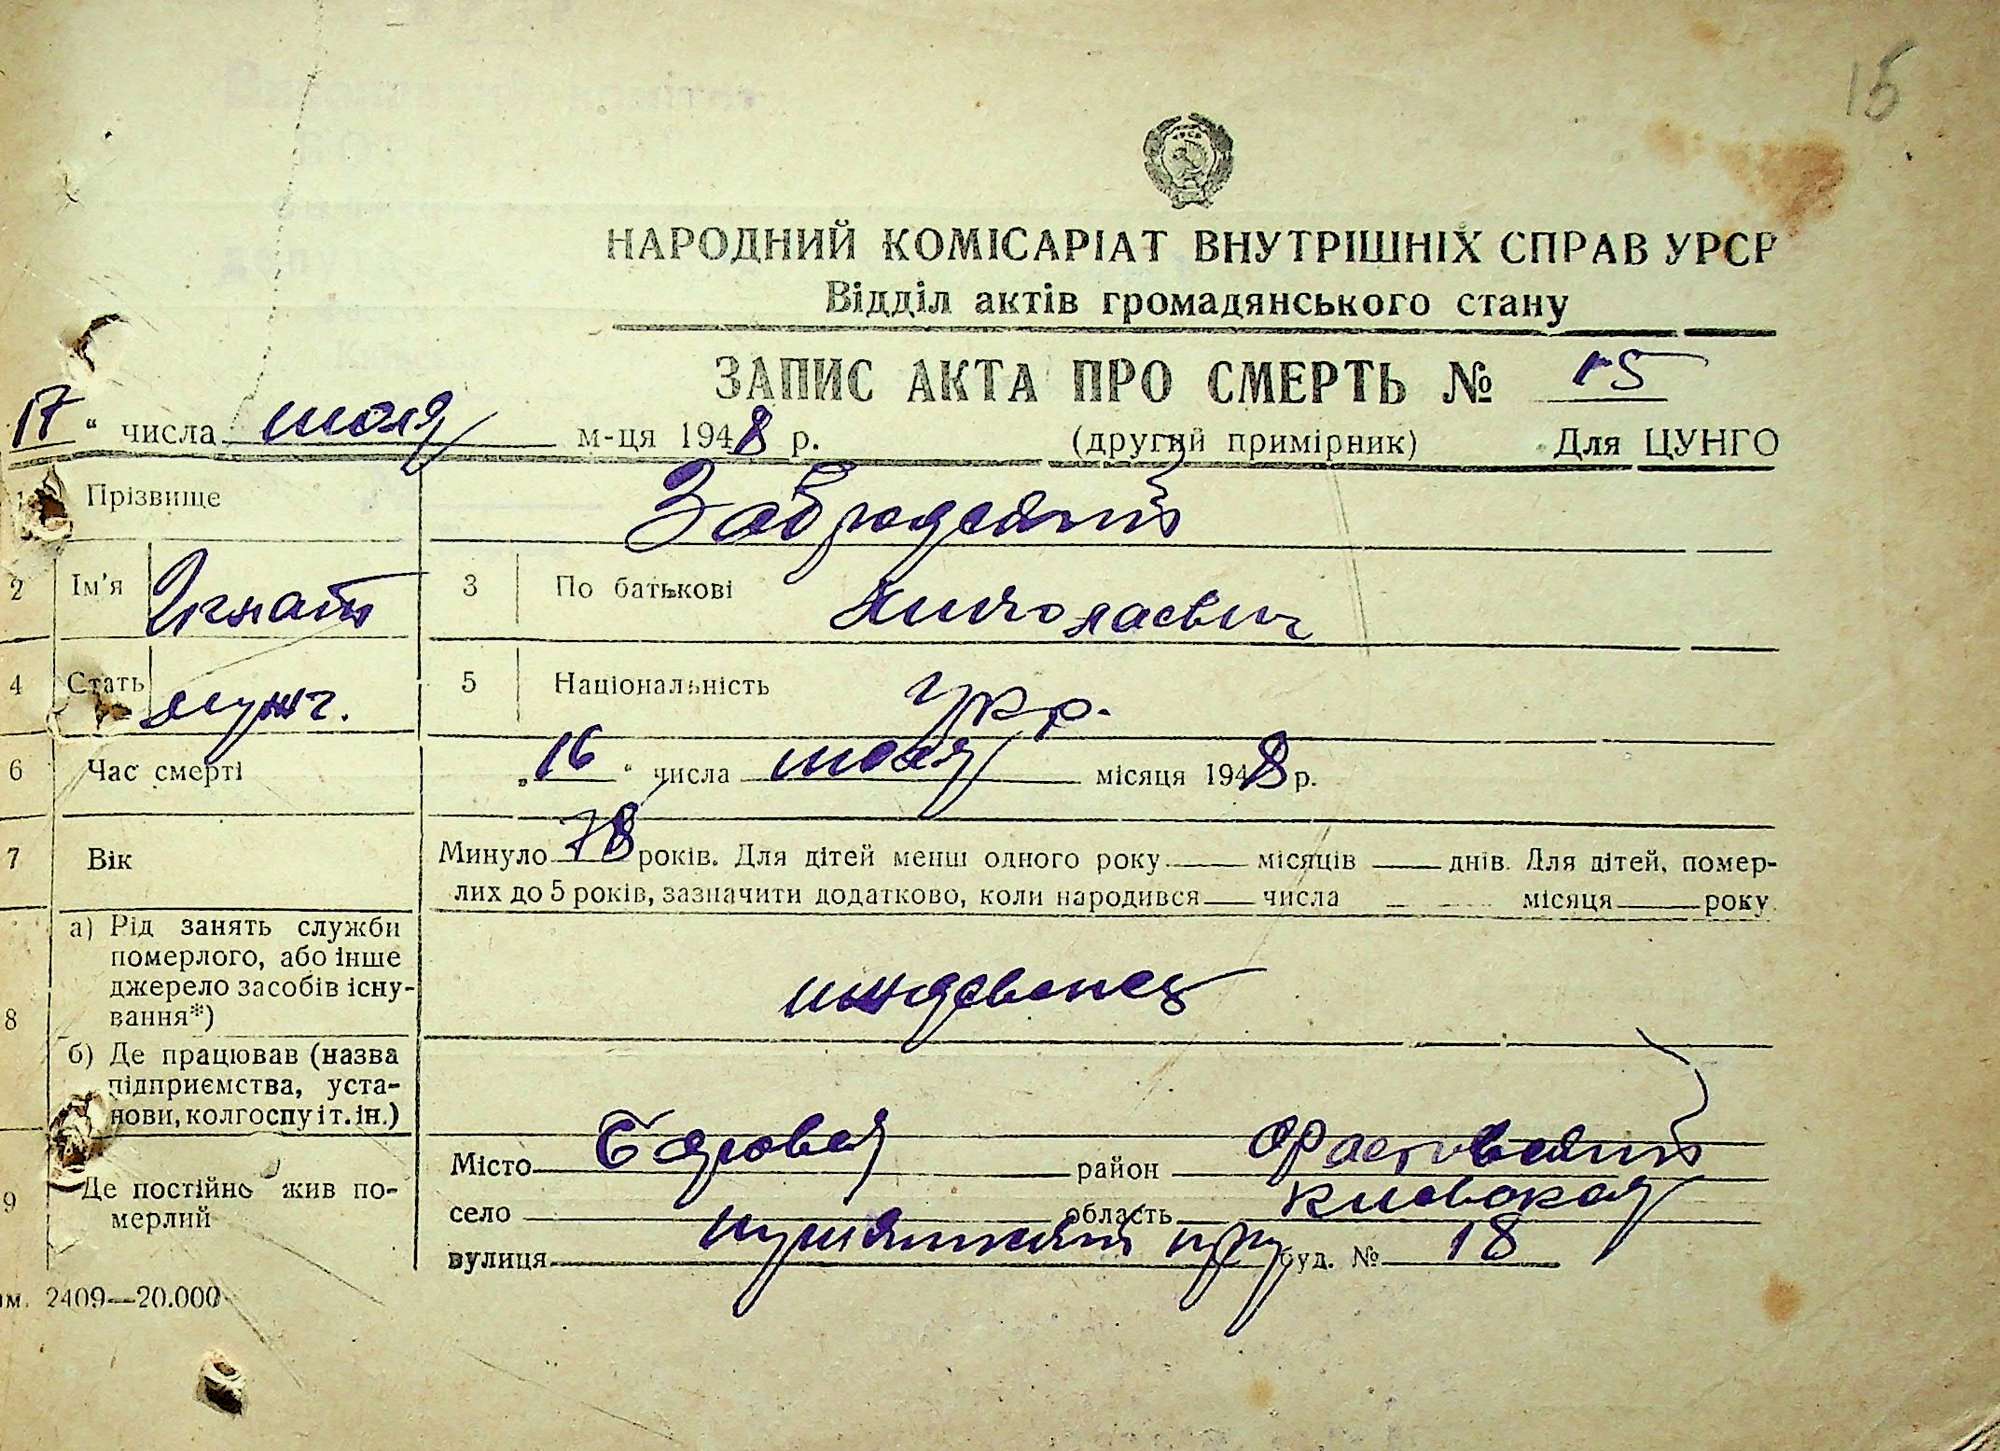 15
НАРОДНИЙ КОМІСАРІАТ ВНУТРІШНІХ СПРАВ УРСР
Відділ актів громадянського стану
ЗАПИС АКТА ПРО СМЕРТЬ № 15
17 " числа июля м-ця 1948 р. (другий примірник) Для ЦУНГО
1 Прізвище
2 Ім'я Игнат 3 По батькові Николаевич
4 Стать мужч. 5 Національність Укр.
6 Час смерті „16 " числа июля місяця 1948 р.
7 Вік Минуло 78 років. Для дітей менш одного року місяців днів. Для дітей, помер-
лих до 5 років, зазначити додатково, коли народився числа місяця року
8 а) Рід занять служби
померлого, або інше
джерело засобів існу-
вання*) иждевенец
б) Де працював (назва
підприємства, уста-
нови, колгоспу і т. ін.)
9 Де постійно жив по-
мерлий
Місто Боровая район Фастовский
село область Киевская
вулиця буд. № 18
ам. 2409—20.000